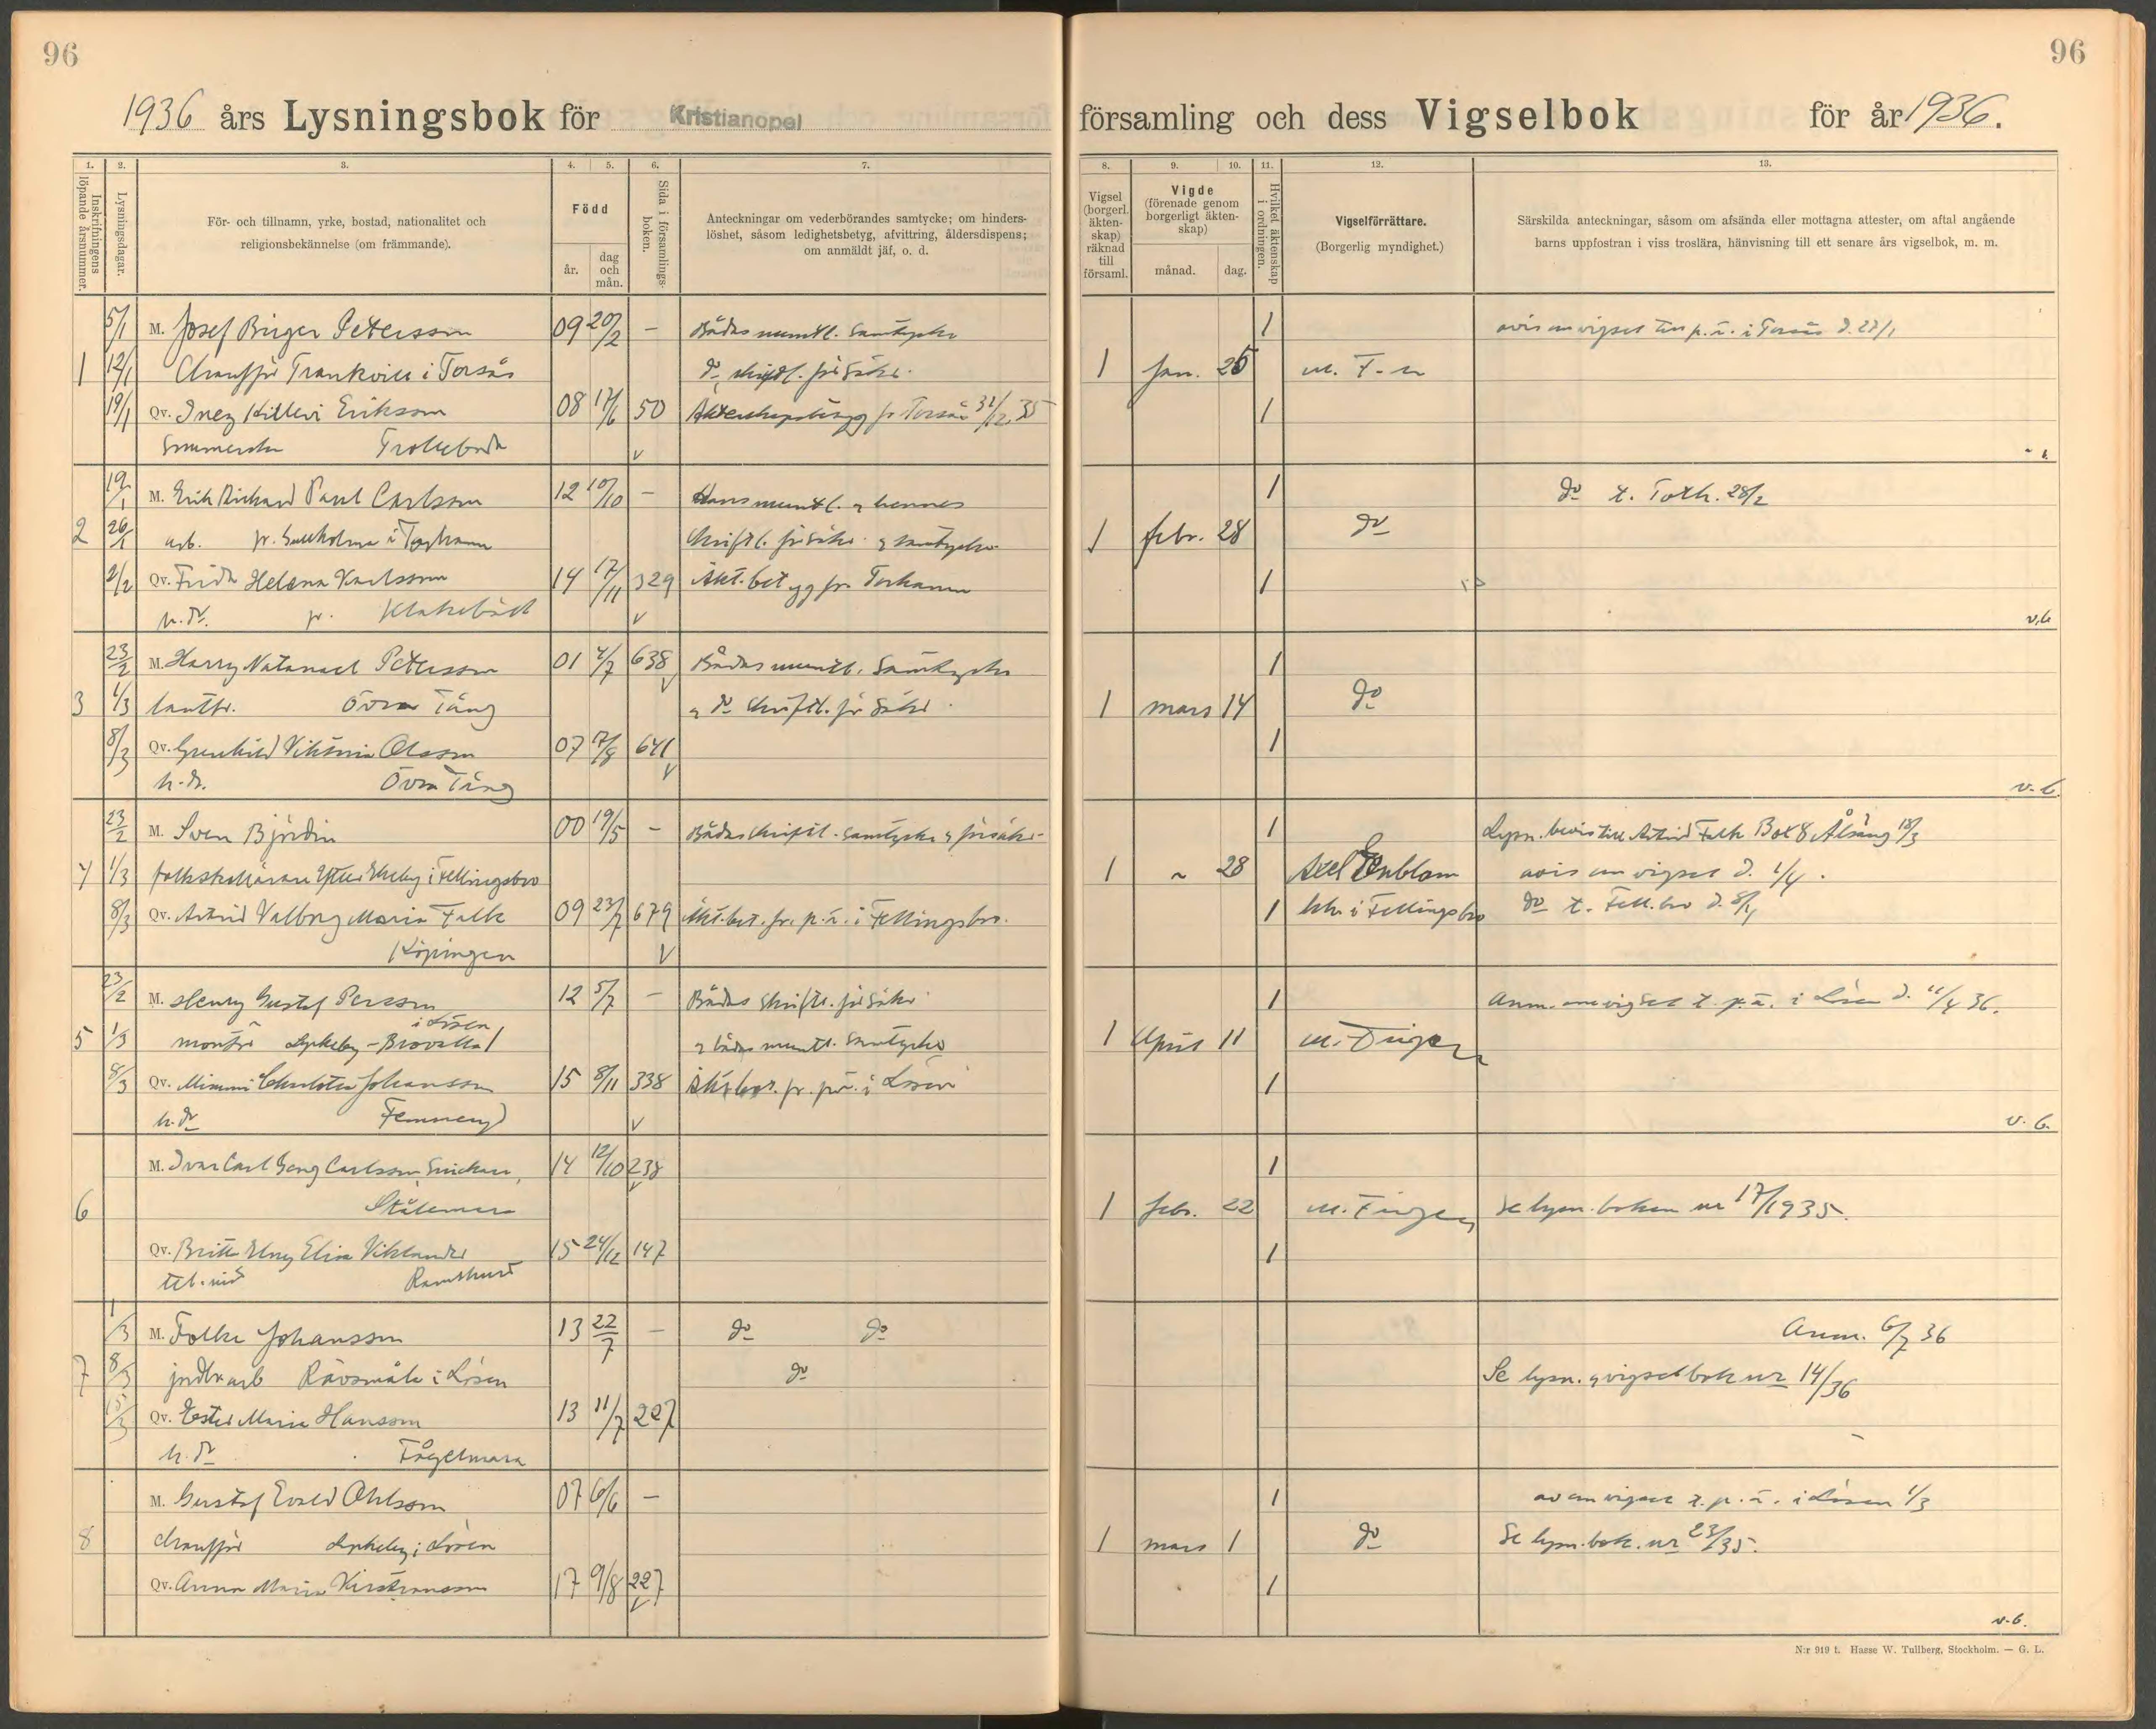 96
96
1936 års Lysningsbok för Kristianopel
församling och dess Vigselbok för år 1936.
1. 2. 3. 4. 5. 6. 7.
8. 9. 10. 11. 12. 13.
Inskrifningens löpande årsnummer.
Lysningsdagar.
För- och tillnamn, yrke, bostad, nationalitet och
religionsbekännelse (om främmande).
Född
år.
dag
och
mån.
Sida i församlings-
boken.
Anteckningar om vederbörandes samtycke; om hinders-
löshet, såsom ledighetsbetyg, afvittring, åldersdispens;
om anmäldt jäf, o. d.
Vigsel
(borgerl.
äkten-
skap)
räknad
till
församl.
Vigde
(förenade genom
borgerligt äkten-
skap)
månad.
dag.
Hvilket äktenskap
i ordningen.
Vigselförrättare.
(Borgerlig myndighet.)
Särskilda anteckningar, såsom om afsända eller mottagna attester, om aftal angående
barns uppfostran i viss troslära, hänvisning till ett senare års vigselbok, m. m.
5/1 M. Josef Birger Petersson 09 20/2 – Bådas muntl. samtycke 1
1 12/1 Chaufför i Torsås do skriftl. försäkr. 1 Jan. 26 M. F-n
19/1 Qv. Inez Eriksson 08 17/6 50 fr. Torsås 31/12 35 1
Trolleboda v
19/1 M. Erik Rickard Paul Carlsson 12 10/10 – Hans muntl. o hennes 1 do t. Torh. 28/2
2 26/1 arb. i Torhamn skriftl. försäkr. o samtycke 1 febr. 28 do
2/2 Qv. Frida Helena Karlsson 14 17/11 329 Äkt. betyg fr. Torhamn 1
h. dr. v v.b.
23/2 M. Harry Natanael Petersson 01 4/7 638 Bådas muntl. samtycke 1
3 1/3 lantbr. Övra Täng o do skriftl. försäkr. 1 mars 14 do
8/3 Qv. Viktoria Olsson 07 17/8 641 1
h. dr. Övra Täng v v.b.
23/2 M. Sven Björdin 00 19/5 – Bådas skriftl. samtycke o försäkr. 1 Lysn. bevis till Astrid Falk Box 8 18/3
4 1/3 folkskollärare i Fellingsbro 1 28 Axel Enblom avis om vigsel d. 1/4.
8/3 Qv. Astrid Valborg Maria Falk 09 23/7 679 Äkt. bet. fr. p.ä. i Fellingsbro. 1 khr i Fellingsbro
Köpingen v
23/2 M. Henry Gustaf Persson 12 5/7 – Bådas skriftl. försäkr. 1 Anm. om vigsel t. p.ä. i Lösen d. 11/4 36.
i Lösen
5 1/3 montör Lyckeby o bådas muntl. samtycke 1 April 11
8/3 Qv. Mimmi Charlotta Johansson 15 8/11 338 Äkt. bet. fr. p.ä. i Lösen 1
h. dr v v. b.
M. Ivar Carl Georg Carlsson, Snickare, 14 12/10 238 1
6 Stålemara 1 febr. 22 Se lysn. boken nr 17/1935.
Qv. Elsy Elisa Viklander 15 24/12 147 1
7 1/3 M. Folke Johansson 13 22/7 – do do Anm. 6/7 36
8/3 i Lösen do Se lysn. o vigselbok nr 14/36
15/3 Qv. Ester Maria Hansson 13 11/7 227
h. dr Fågelmara
M. Gustaf Evald Ohlsson 07 6/6 – 1 av om vigsel t. p.ä. i Lösen 1/3
8 chaufför Lyckeby i Lösen 1 mars 1 do Se lysn. bok. nr 23/35.
Qv. Anna Maria 17 9/8 227 1
v v.b.
N:r 919 t. Hasse W. Tullberg, Stockholm. — G. L.